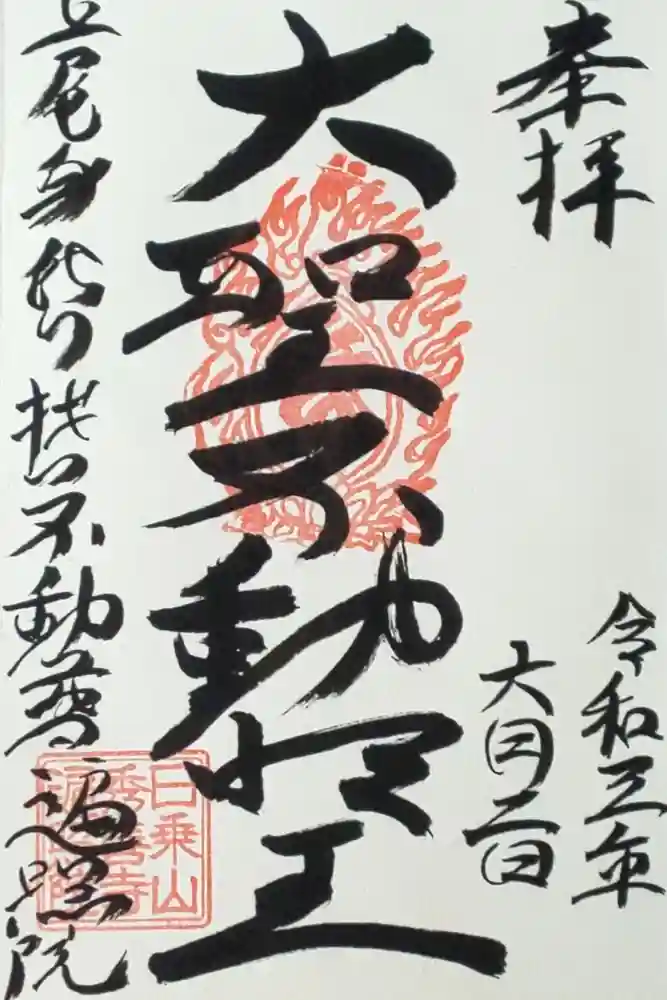 奉拝
令和三年
六月二日
大聖不動明王
上尾身代り 不動尊 遍照院
日乗山
秀善寺
遍照院